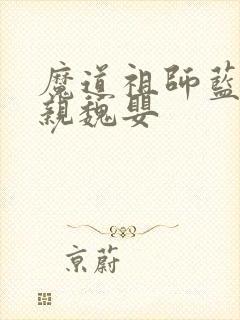 魔道祖師藍
親魏嬰
京蔚